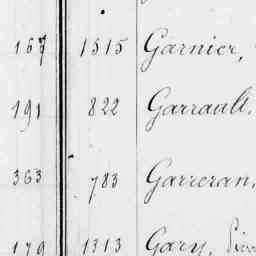 167 1515 Garnier,
191 822 Garrault,
363 783 Garreran,
179 1313 Gary,